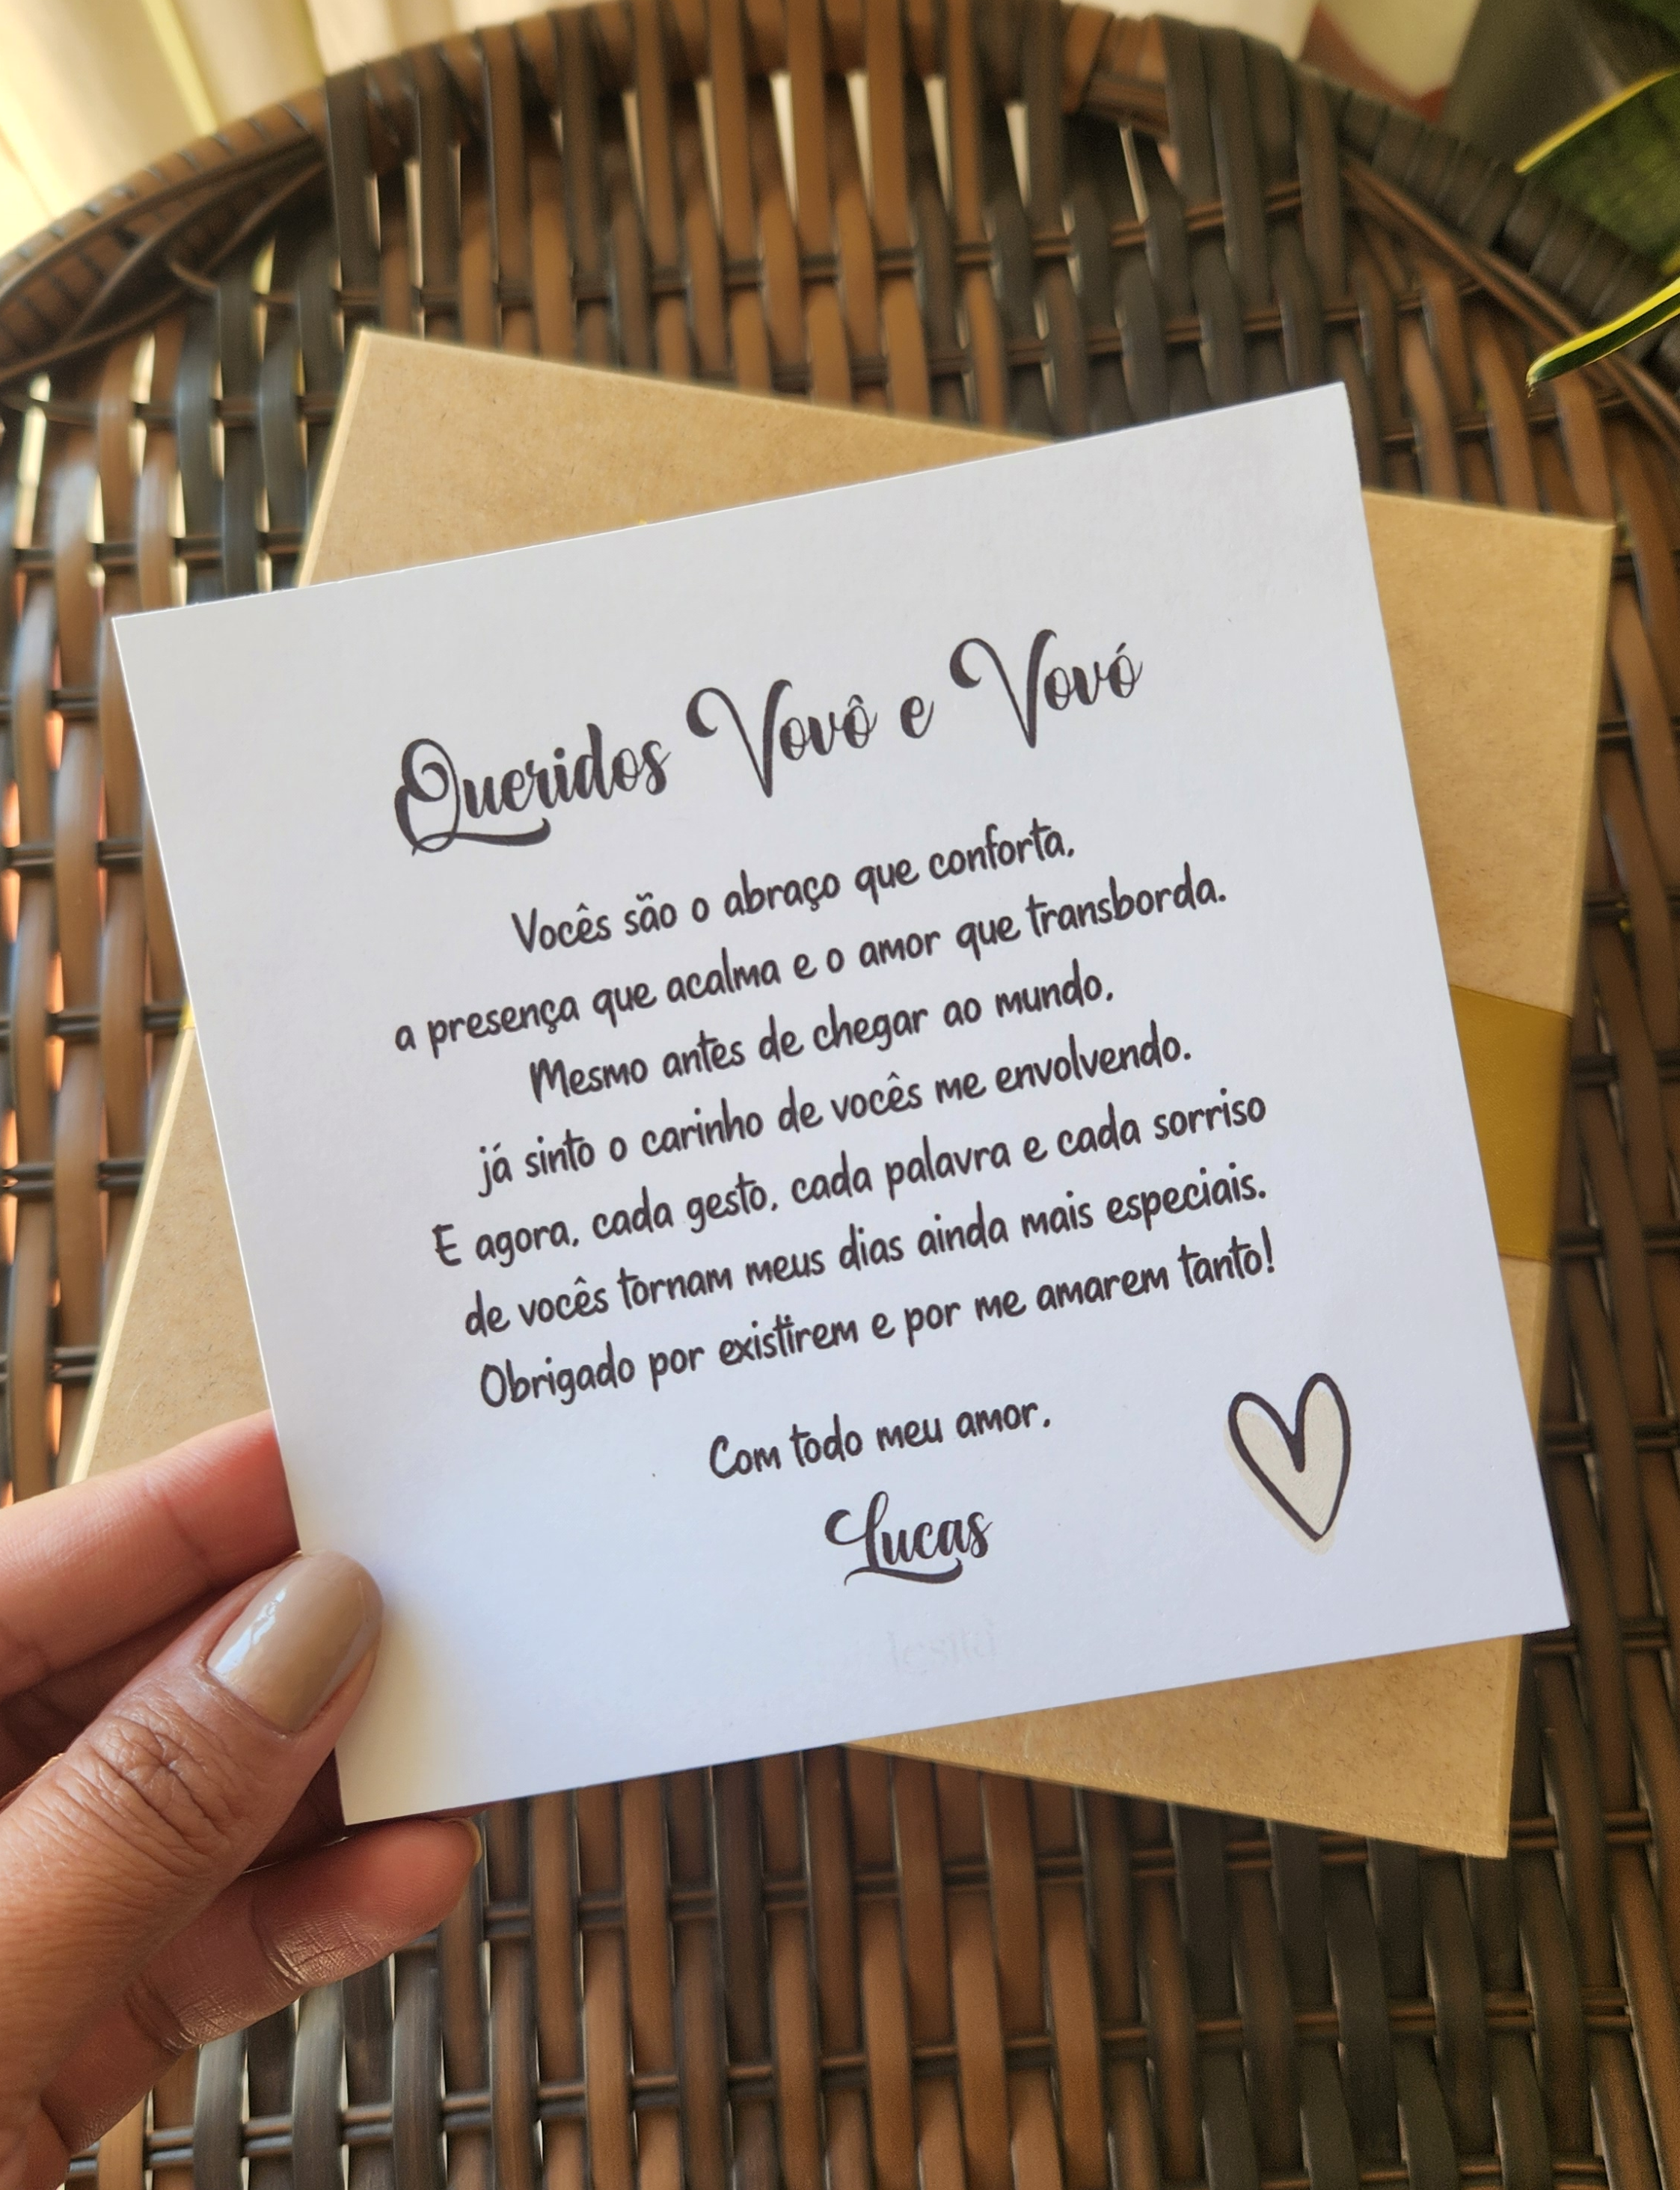 Queridos Vovô e Vovó
Vocês são o abraço que conforta,
a presença que acalma e o amor que transborda.
Mesmo antes de chegar ao mundo,
já sinto o carinho de vocês me envolvendo.
E agora, cada gesto, cada palavra e cada sorriso
de vocês tornam meus dias ainda mais especiais.
Obrigado por existirem e por me amarem tanto!
Com todo meu amor,
Lucas